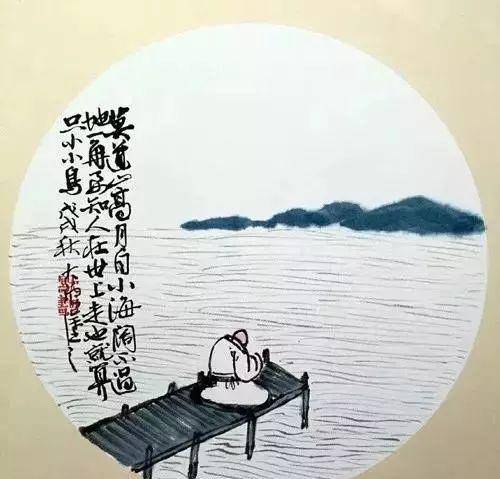 莫道山高月自小海阔不过
地一角知人在世上走也就算
只小小鸟 戊戌秋